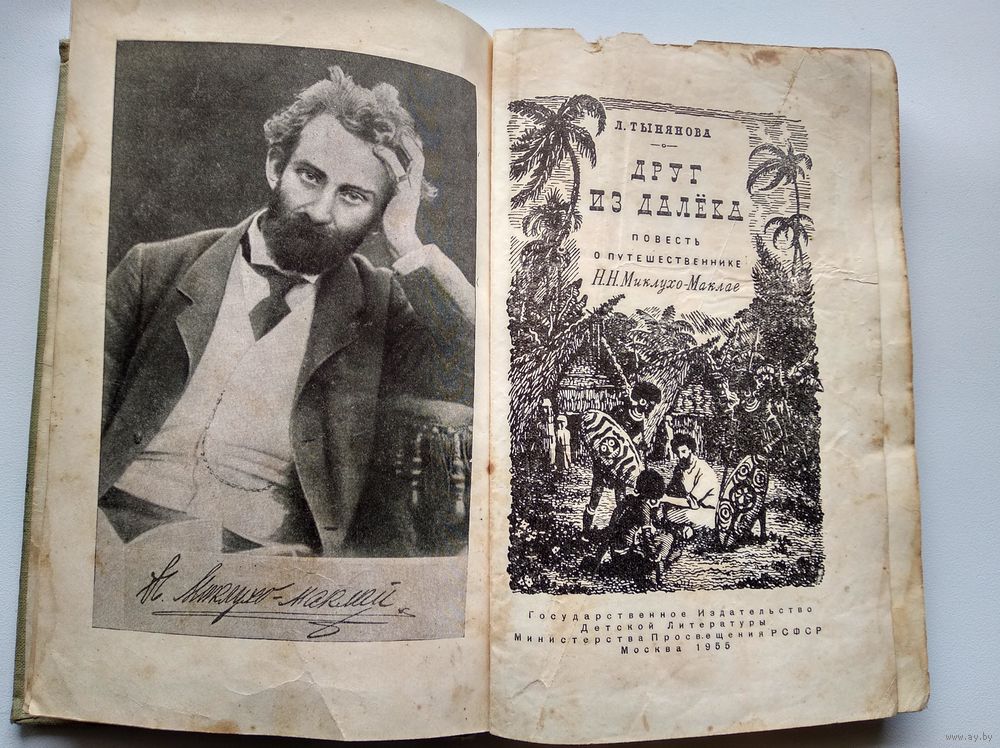 Н. Миклухо-Маклай
Л. ТЫНЯНОВА
ДРУГ
ИЗ ДАЛЁКА
ПОВЕСТЬ
О ПУТЕШЕСТВЕННИКЕ
Н.Н. Миклухо-Маклае
Государственное Издательство
Детской Литературы
Министерства Просвещения РСФСР
Москва 1955
www.ay.by